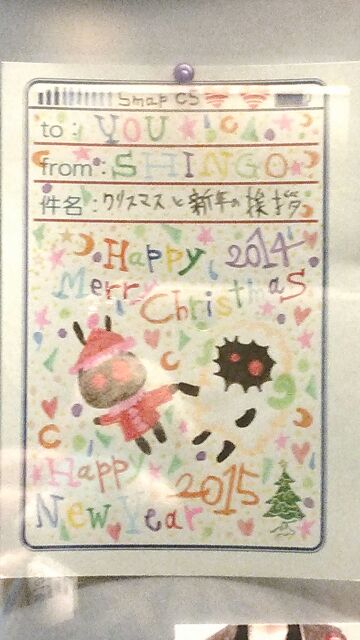 Smap CS
to: YOU
from: SHINGO
件名: クリスマスと新年の挨拶
Happy 2014
Merry Christmas
Happy 2015
New Year